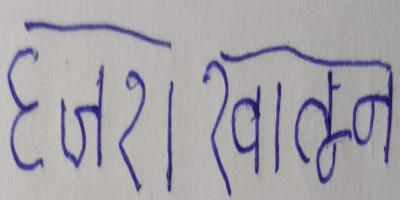 हजरा खातून